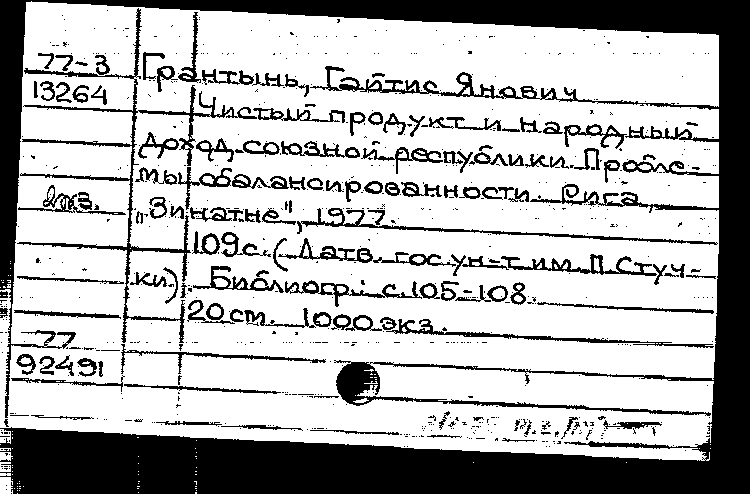 77-3 Грантынь, Гайтис Янович
13264 Чистый продукт и народный
доход союзной республики. Пробле-
мы сбалансированности. Рига,
"Зинатне", 1977.
109с. (Латв. гос. ун-т им. П. Стуч-
ки). Библиогр.: с. 105-108.
20 см. 1000 экз.
77
92491